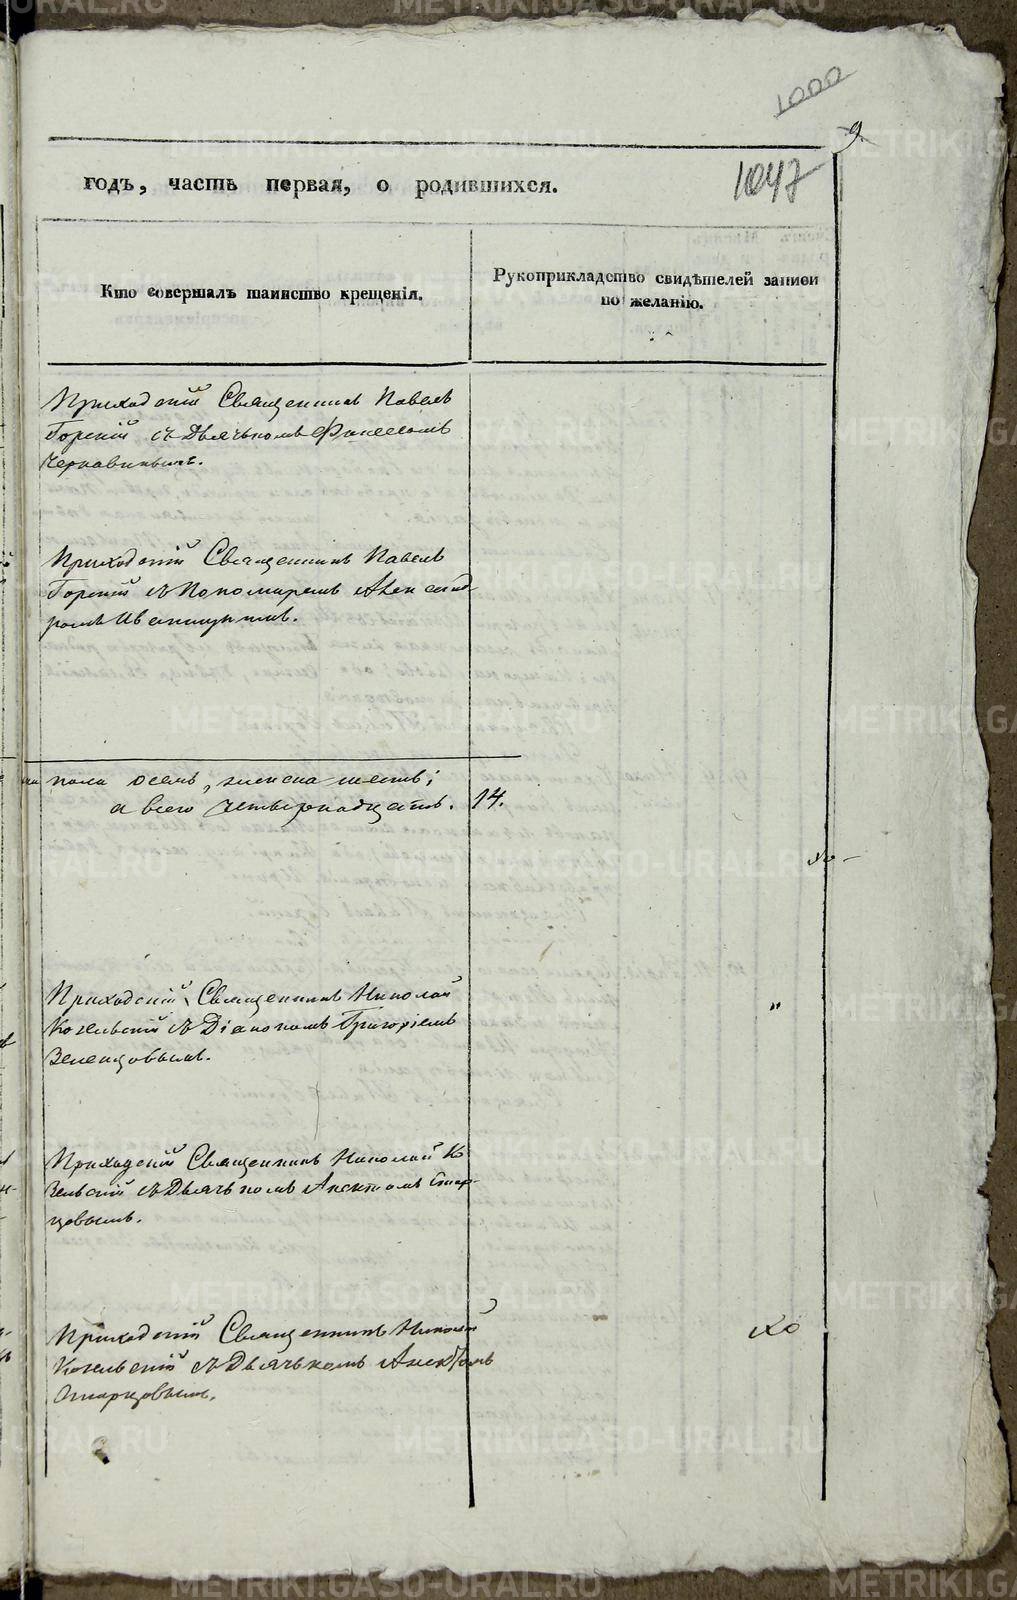 1000
9.
годъ, часть первая, о родившихся.
1047
Кто совершалъ таинство крещенія.
Рукоприкладство свидѣтелей записи
по желанію.
Приходскій Священникъ Павелъ
Горскій съ Дьячькомъ
Чернавинымъ.
Приходскій Священникъ Павелъ
Горскій съ Пономаремъ Александ-
ромъ
пола осемь, женска шесть;
а всего четырнадцать. 14.
Приходскій Священникъ Николай
Козельскій съ Діакономъ Григоріемъ
Зеленцовымъ.
Приходскій Священникъ Николай Ко
зельскій съ Дьячькомъ Стар-
цовымъ.
Приходскій Священникъ Николай
Козельскій съ Дьячькомъ
Старцовымъ.
METRIKI.GASO-URAL.RU